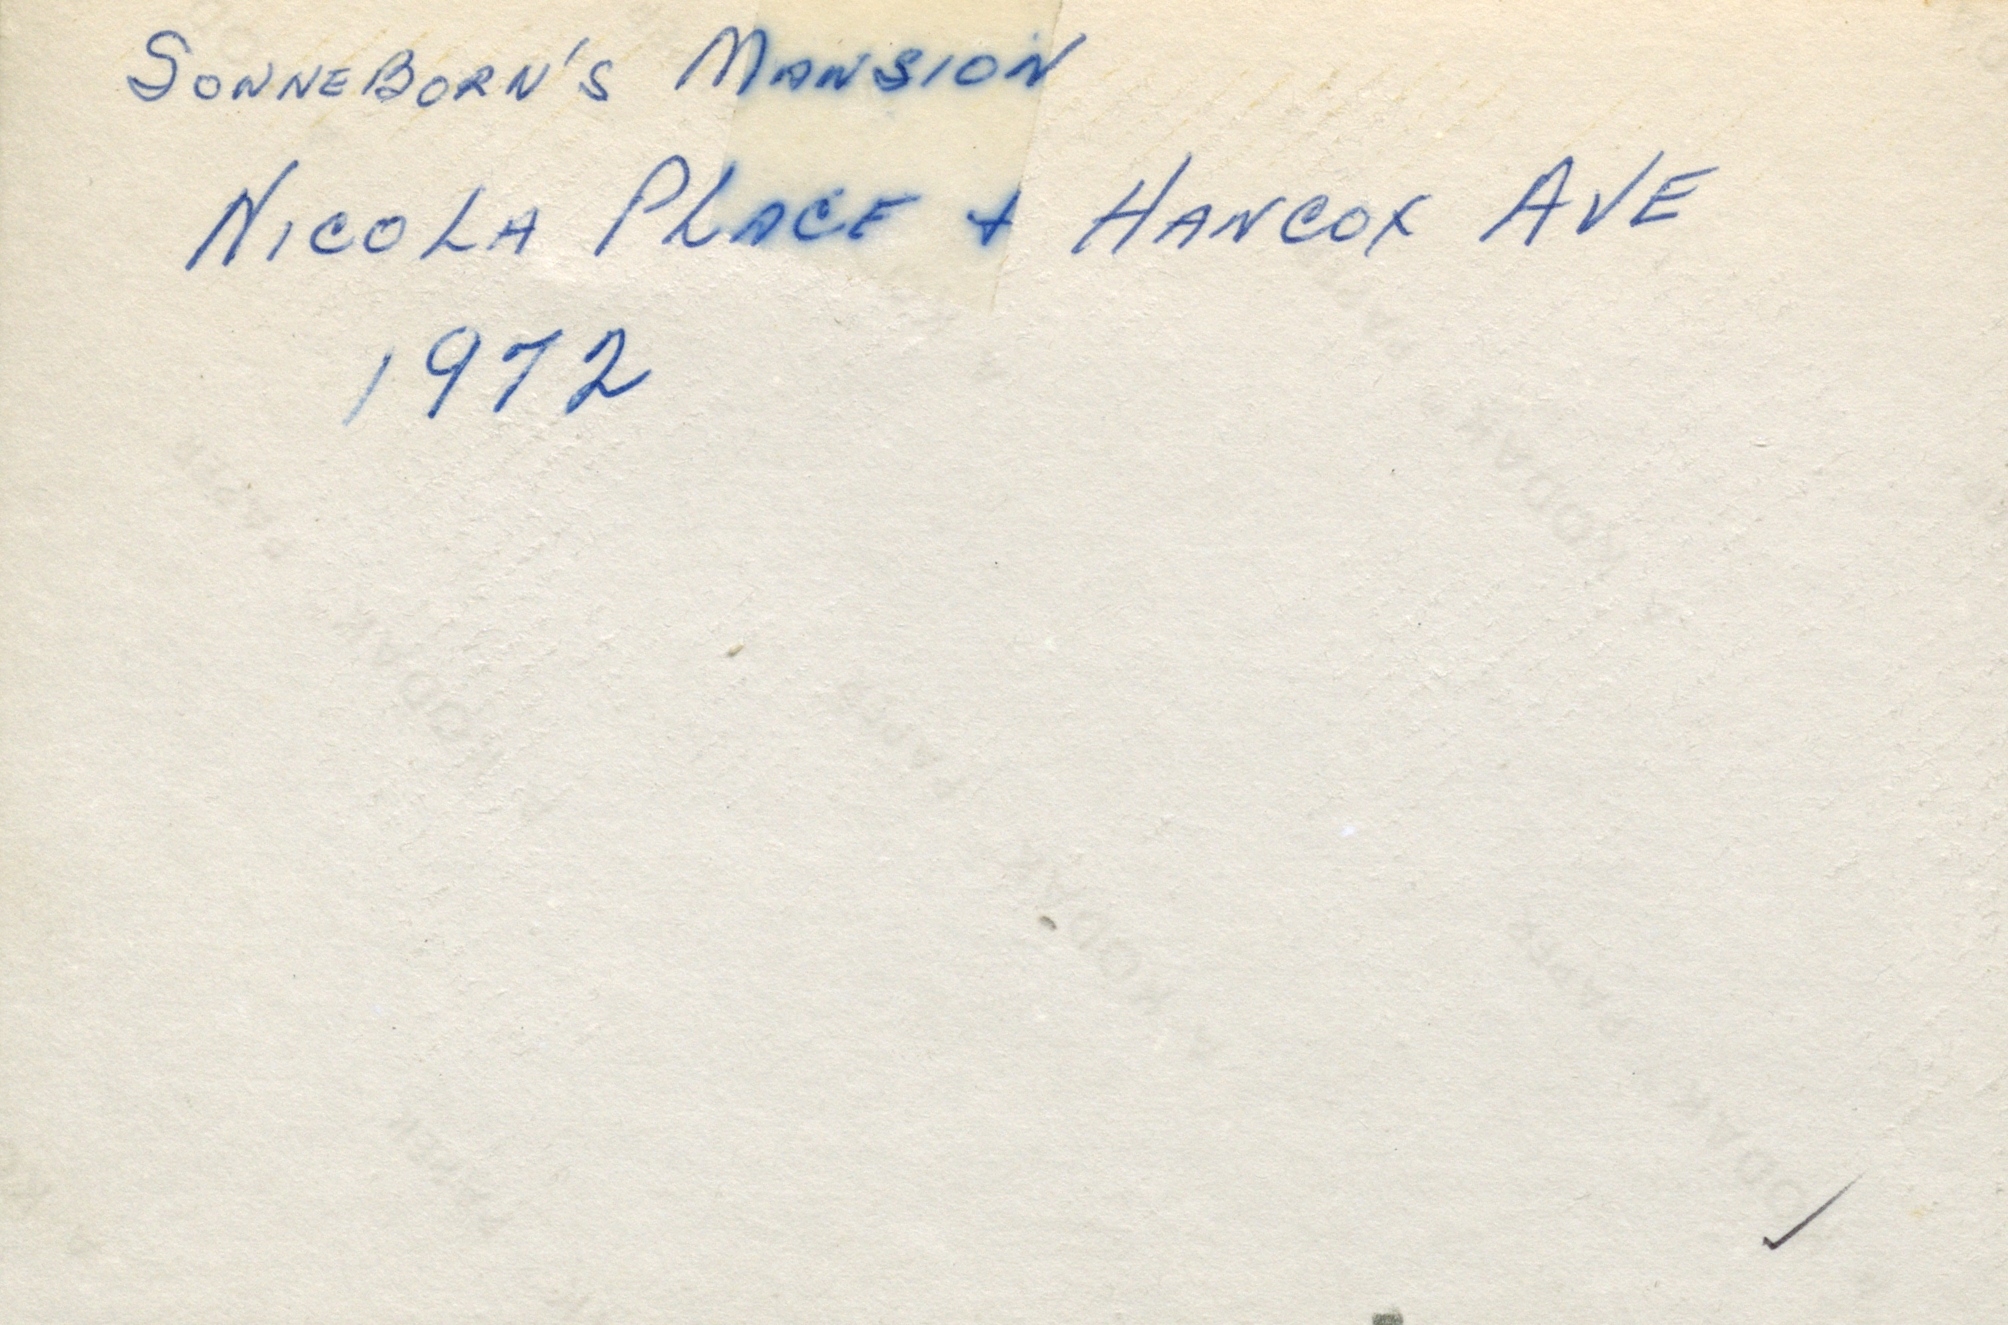 SONNEBORN'S MANSION
NICOLA PLACE + HANCOX AVE
1972
KODAK
PAPER
PAPER
KODAK
PAPER
KODAK
PAPER
KODAK
PAPER
KODAK